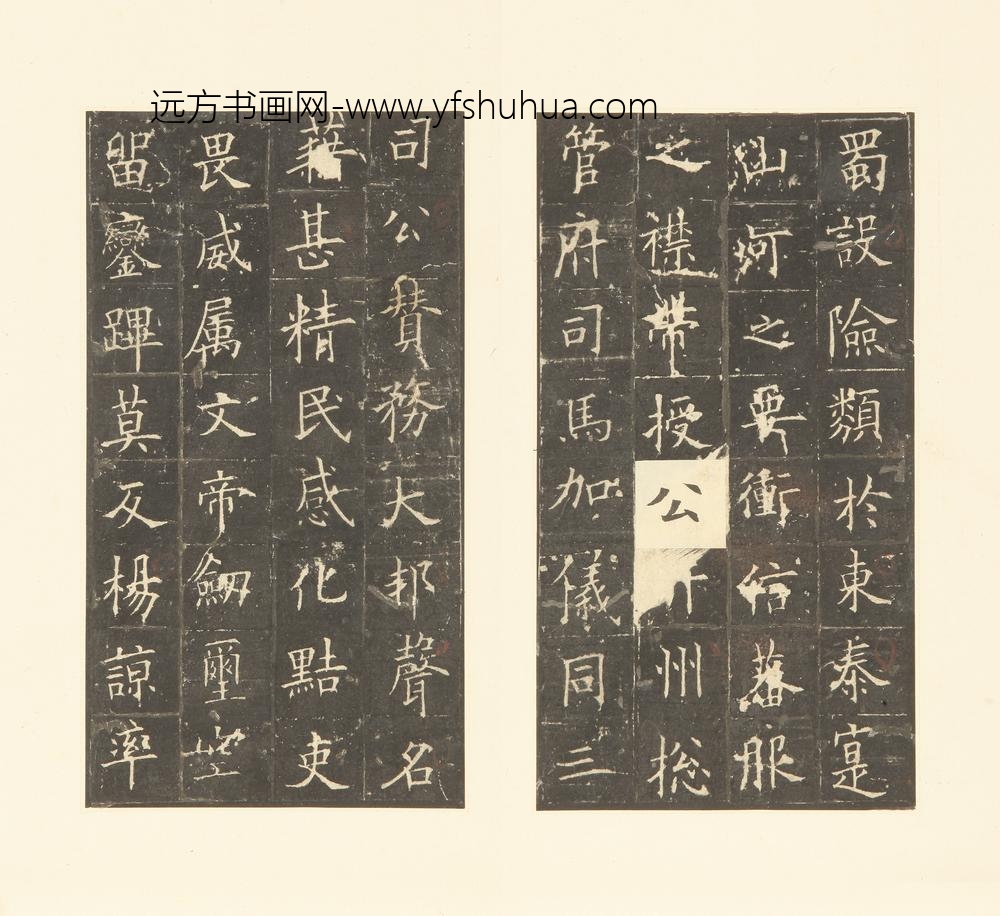 远方书画网-www.yfshuhua.com
蜀設險類於東泰寔
仙㢤之要衝信蕃服
之襟帶授公卞州捴
管府司馬加儀同三
司公賛務大邦聲名
藉甚精民感化黠吏
畏威属文帝劒璽空
留鑾蹕莫反楊諒率